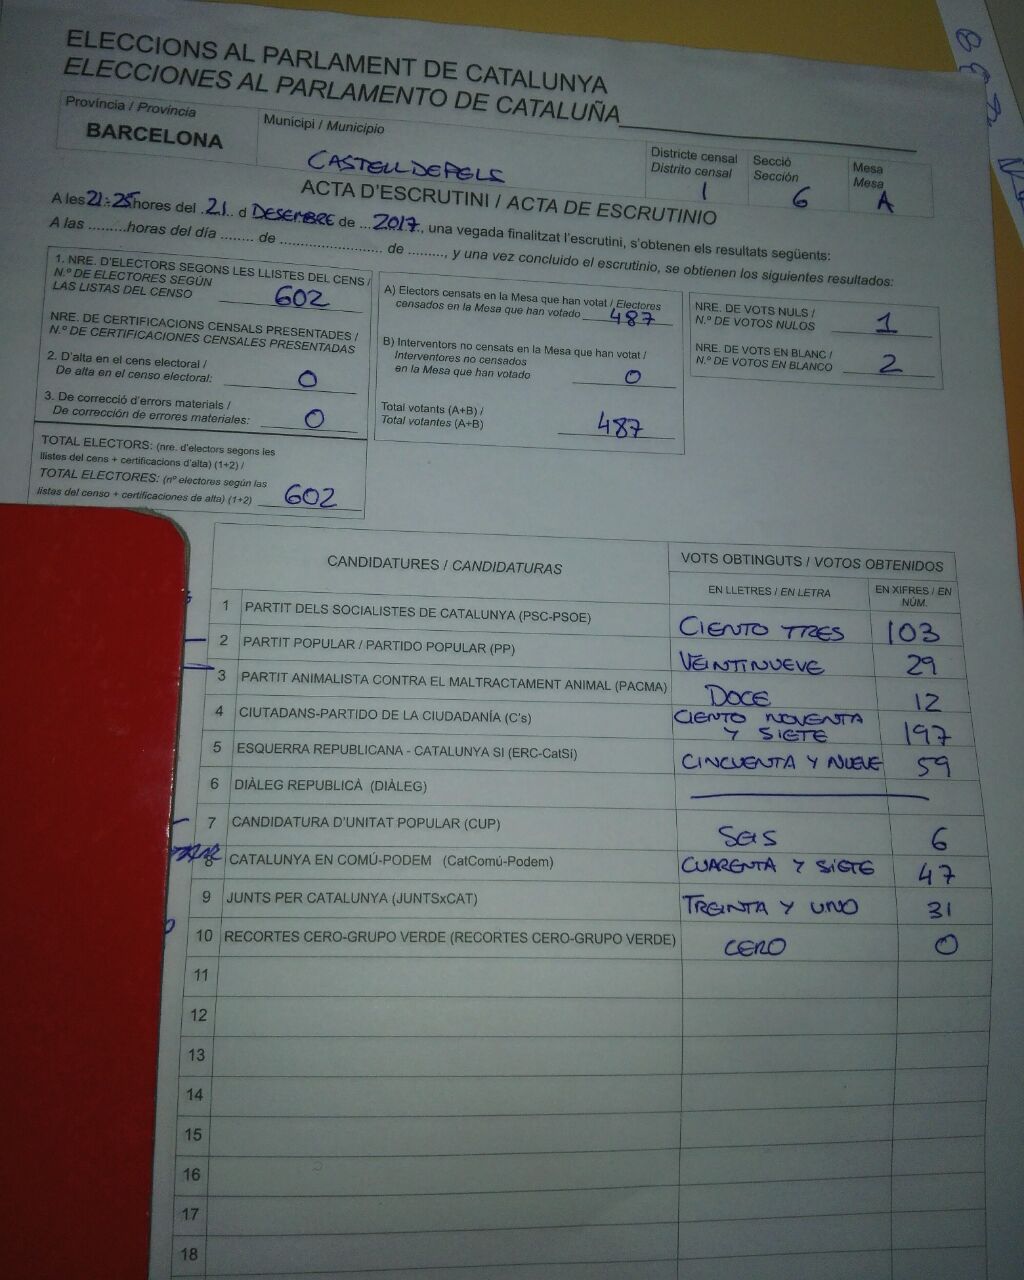 ELECCIONS AL PARLAMENT DE CATALUNYA
ELECCIONES AL PARLAMENTO DE CATALUÑA
Província / Provincia
BARCELONA
Municipi / Municipio
CASTELLDEFELS
Districte censal
Distrito censal
1
Secció
Sección
6
Mesa
Mesa
A
ACTA D'ESCRUTINI / ACTA DE ESCRUTINIO
A les 21:25 hores del .21.. d DESEMBRE de ...2017., una vegada finalitzat l'escrutini, s'obtenen els resultats següents:
A las .........horas del día ........ de ........................ de ........., y una vez concluido el escrutinio, se obtienen los siguientes resultados:
1. NRE. D'ELECTORS SEGONS LES LLISTES DEL CENS /
N.º DE ELECTORES SEGÚN
LAS LISTAS DEL CENSO 602
NRE. DE CERTIFICACIONS CENSALS PRESENTADES /
N.º DE CERTIFICACIONES CENSALES PRESENTADAS
2. D'alta en el cens electoral /
De alta en el censo electoral: 0
3. De correcció d'errors materials /
De corrección de errores materiales: 0
TOTAL ELECTORS: (nre. d'electors segons les
llistes del cens + certificacions d'alta) (1+2) /
TOTAL ELECTORES: (nº electores según las
listas del censo + certificaciones de alta) (1+2) 602
A) Electors censats en la Mesa que han votat / Electores
censados en la Mesa que han votado 487
B) Interventors no censats en la Mesa que han votat /
Interventores no censados
en la Mesa que han votado 0
Total votants (A+B) /
Total votantes (A+B) 487
NRE. DE VOTS NULS /
N.º DE VOTOS NULOS 1
NRE. DE VOTS EN BLANC /
N.º DE VOTOS EN BLANCO 2
CANDIDATURES / CANDIDATURAS
VOTS OBTINGUTS / VOTOS OBTENIDOS
EN LLETRES / EN LETRA
EN XIFRES / EN
NÚM.
1 PARTIT DELS SOCIALISTES DE CATALUNYA (PSC-PSOE) CIENTO TRES 103
2 PARTIT POPULAR / PARTIDO POPULAR (PP) VEINTINUEVE 29
3 PARTIT ANIMALISTA CONTRA EL MALTRACTAMENT ANIMAL (PACMA) DOCE 12
4 CIUTADANS-PARTIDO DE LA CIUDADANÍA (C's) CIENTO NOVENTA
Y SIETE 197
5 ESQUERRA REPUBLICANA - CATALUNYA SI (ERC-CatSí) CINCUENTA Y NUEVE 59
6 DIÀLEG REPUBLICÀ (DIÀLEG)
7 CANDIDATURA D'UNITAT POPULAR (CUP) SEIS 6
8 CATALUNYA EN COMÚ-PODEM (CatComú-Podem) CUARENTA Y SIETE 47
9 JUNTS PER CATALUNYA (JUNTSxCAT) TREINTA Y UNO 31
10 RECORTES CERO-GRUPO VERDE (RECORTES CERO-GRUPO VERDE) CERO 0
11
12
13
14
15
16
17
18